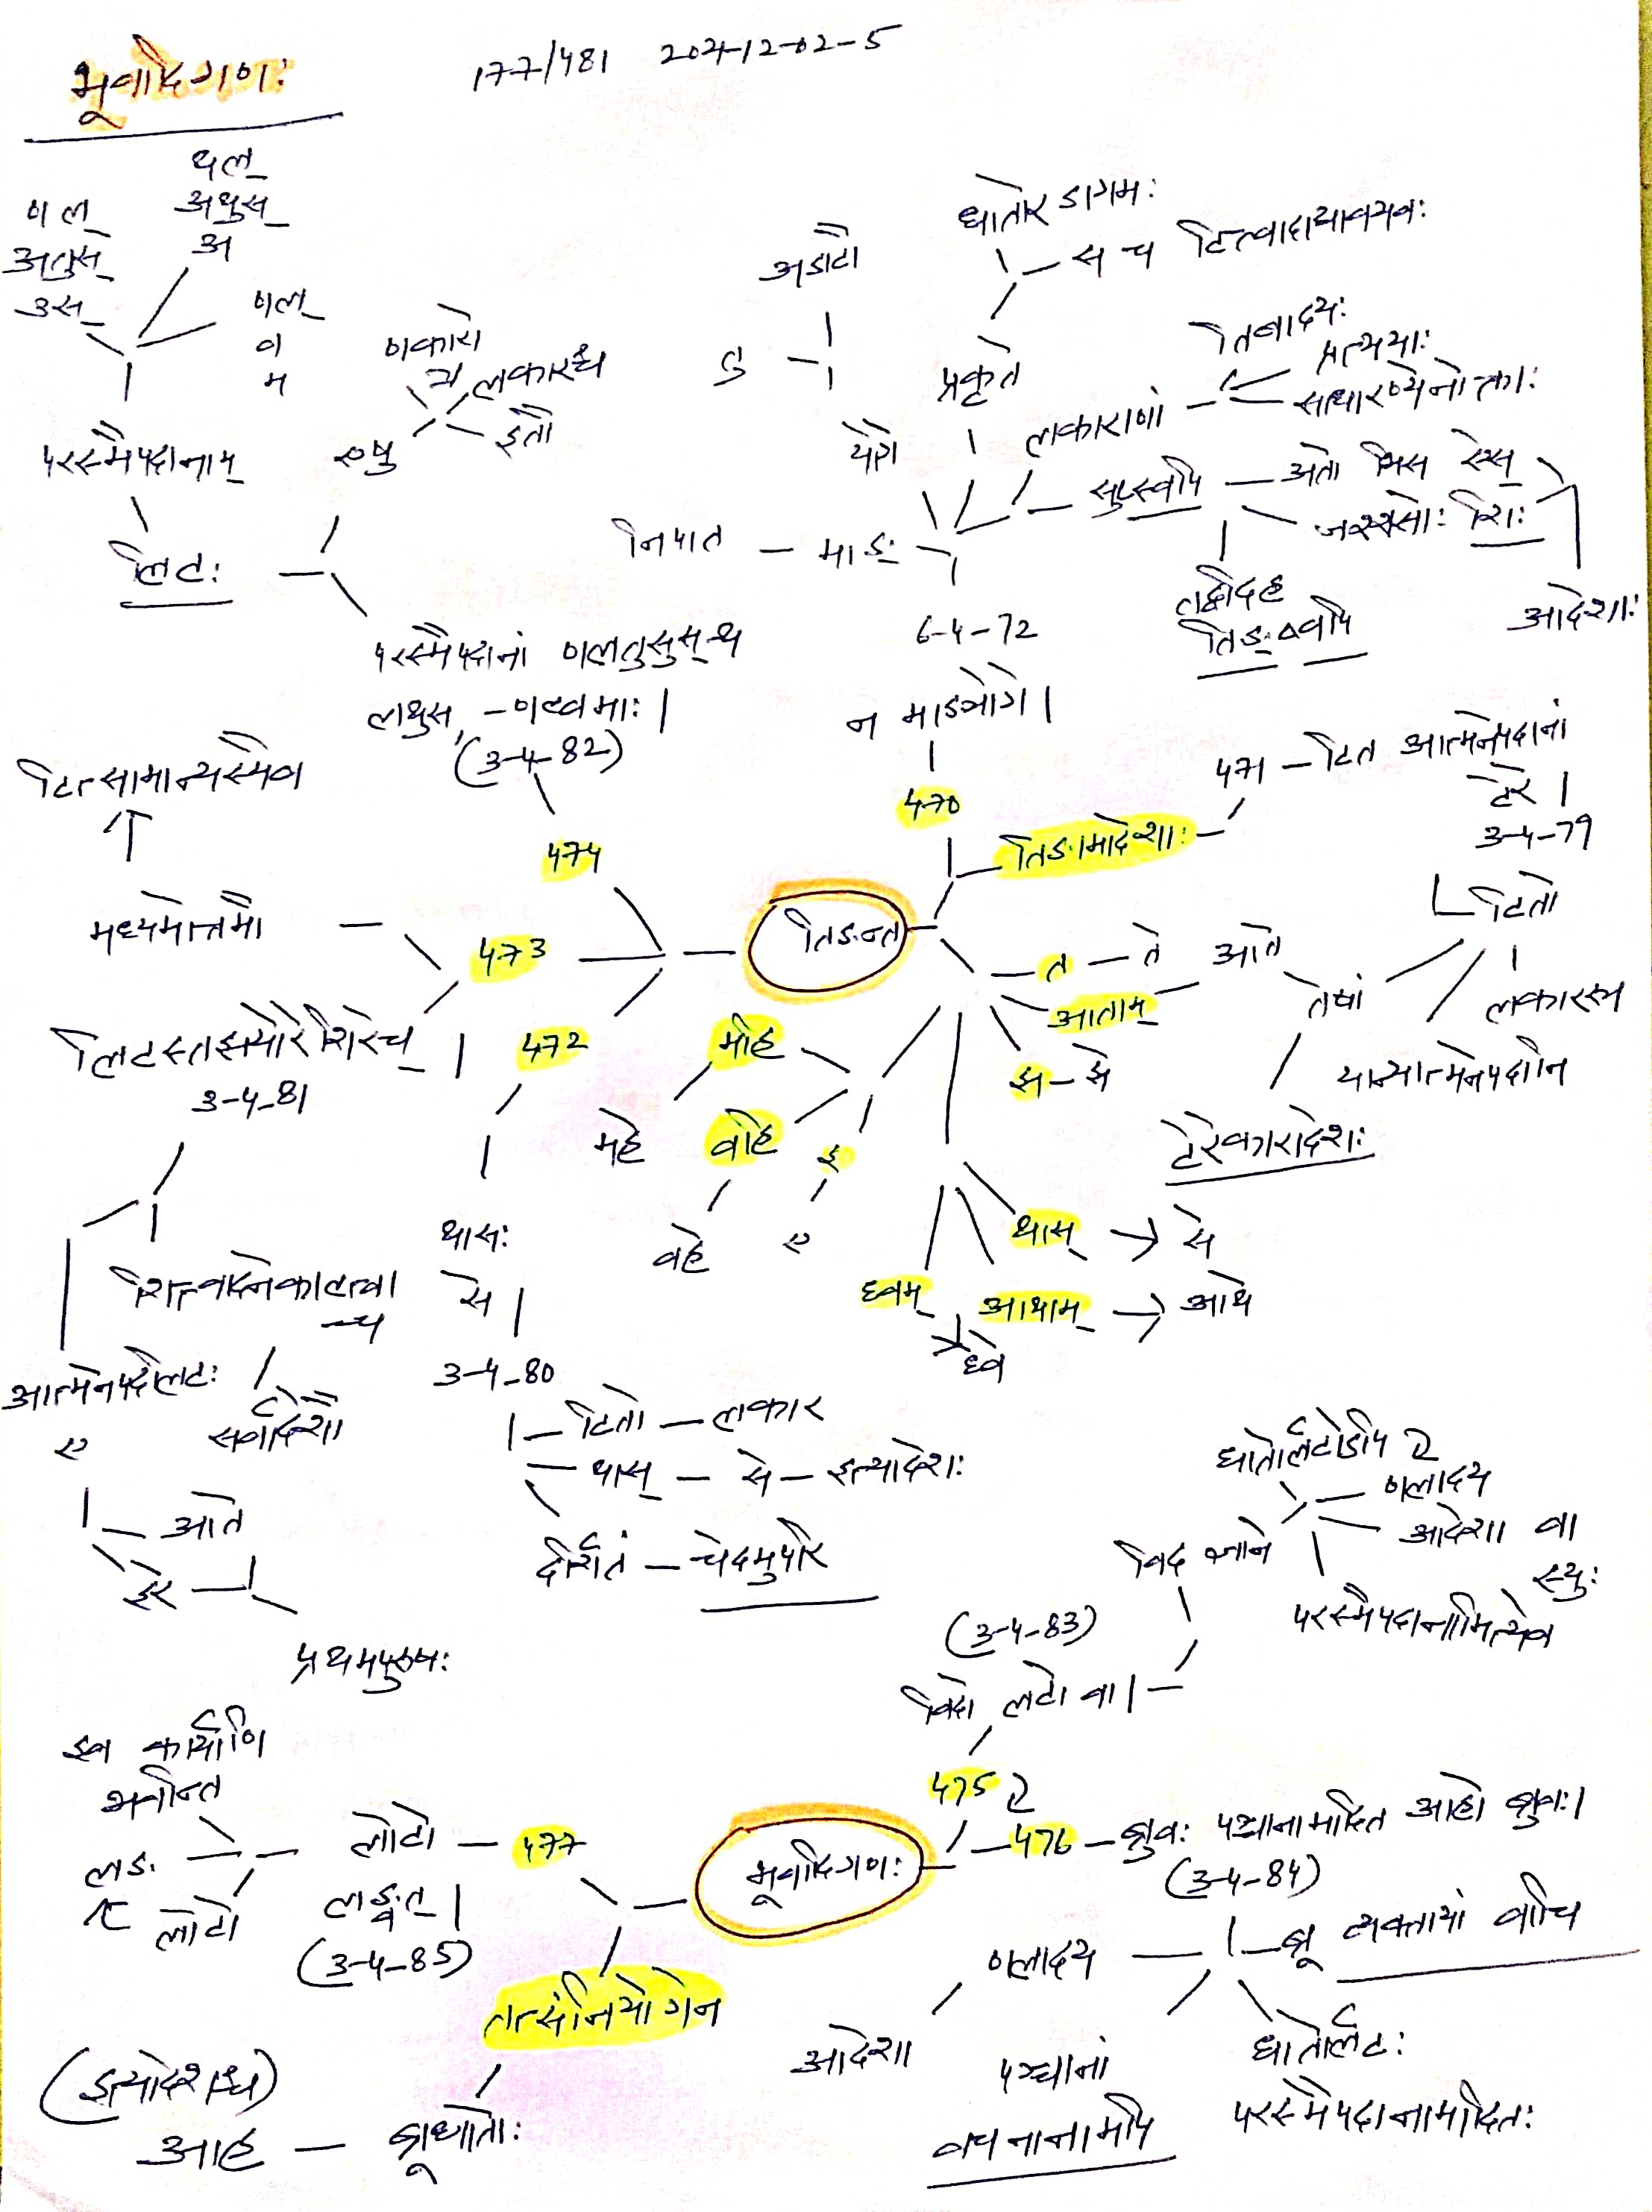 भूवादिगणः
177/481 2021-12-02-5
थल्
अथुस्
अ
णल्
अतुस्
उस्
णल्
व
म
परस्मैपदानाम्
लिटः
णकारो
लकारश्च
इतौ
एषु
परस्मैपदानां णलतुसुस्-थ
लथुस्-णल्वमाः।
(3-4-82)
474
अडाटौ
धातोर डागमः
स च टित्वादाद्यावयवः
प्रकृते
योगे
लकाराणां
तिबादयः
प्रत्ययाः
साधारण्येनोक्ताः
सुप्स्वपि
अतो भिस ऐस्
जश्शसोः शिः
आदेशाः
तद्वदिह
तिङ्क्ष्वपि
निपात — माङः
6-4-72
न माङ्योगे।
470
तिङामादेशाः
471 — टित आत्मनेपदानां
टेरे।
3-4-79
टितो
लकारस्य
यान्यात्मनेपदानि
तेषां
टेरेकारादेशः
तिङन्त
त — ते
आताम् — आते
झ — झे
थास् → से
आथाम् → आथे
ध्वम्
ध्वे
महि
महे
वहि
वहे
इ
ए
टित्सामान्यस्यैव
मध्यमोत्तमौ
473
लिटस्तझयोरेशिरेच्।
3-4-81
शित्त्वादनेकाल्त्वा
च्च
सर्वादेशौ
आत्मनेपदेलिटः
ए
आते
इरे
प्रथमपुरुषः
472
थासः
से।
3-4-80
टितो — लकार
थास् — से — इत्यादेशः
दर्शितं — चेदमुपरि
धातोर्लटोऽपि
णलादय
आदेशा वा
स्युः
परस्मैपदानामित्येव
विद ज्ञाने
(3-4-83)
विदो लटो वा।
475
476 — ब्रुवः पञ्चानामादित आहो ब्रुवः।
(3-4-84)
ब्रू व्यक्तायां वाचि
धातोर्लटः
परस्मैपदानामादितः
पञ्चानां
वचनानामपि
णलादय
आदेशा
भूवादिगणः
477
लोटो
लङ्वत्।
(3-4-85)
इव कार्याणि
भवन्ति
लङः
लोटो
तत्संनियोगेन
ब्रूधातोः
आह
(इत्यादेशश्च)